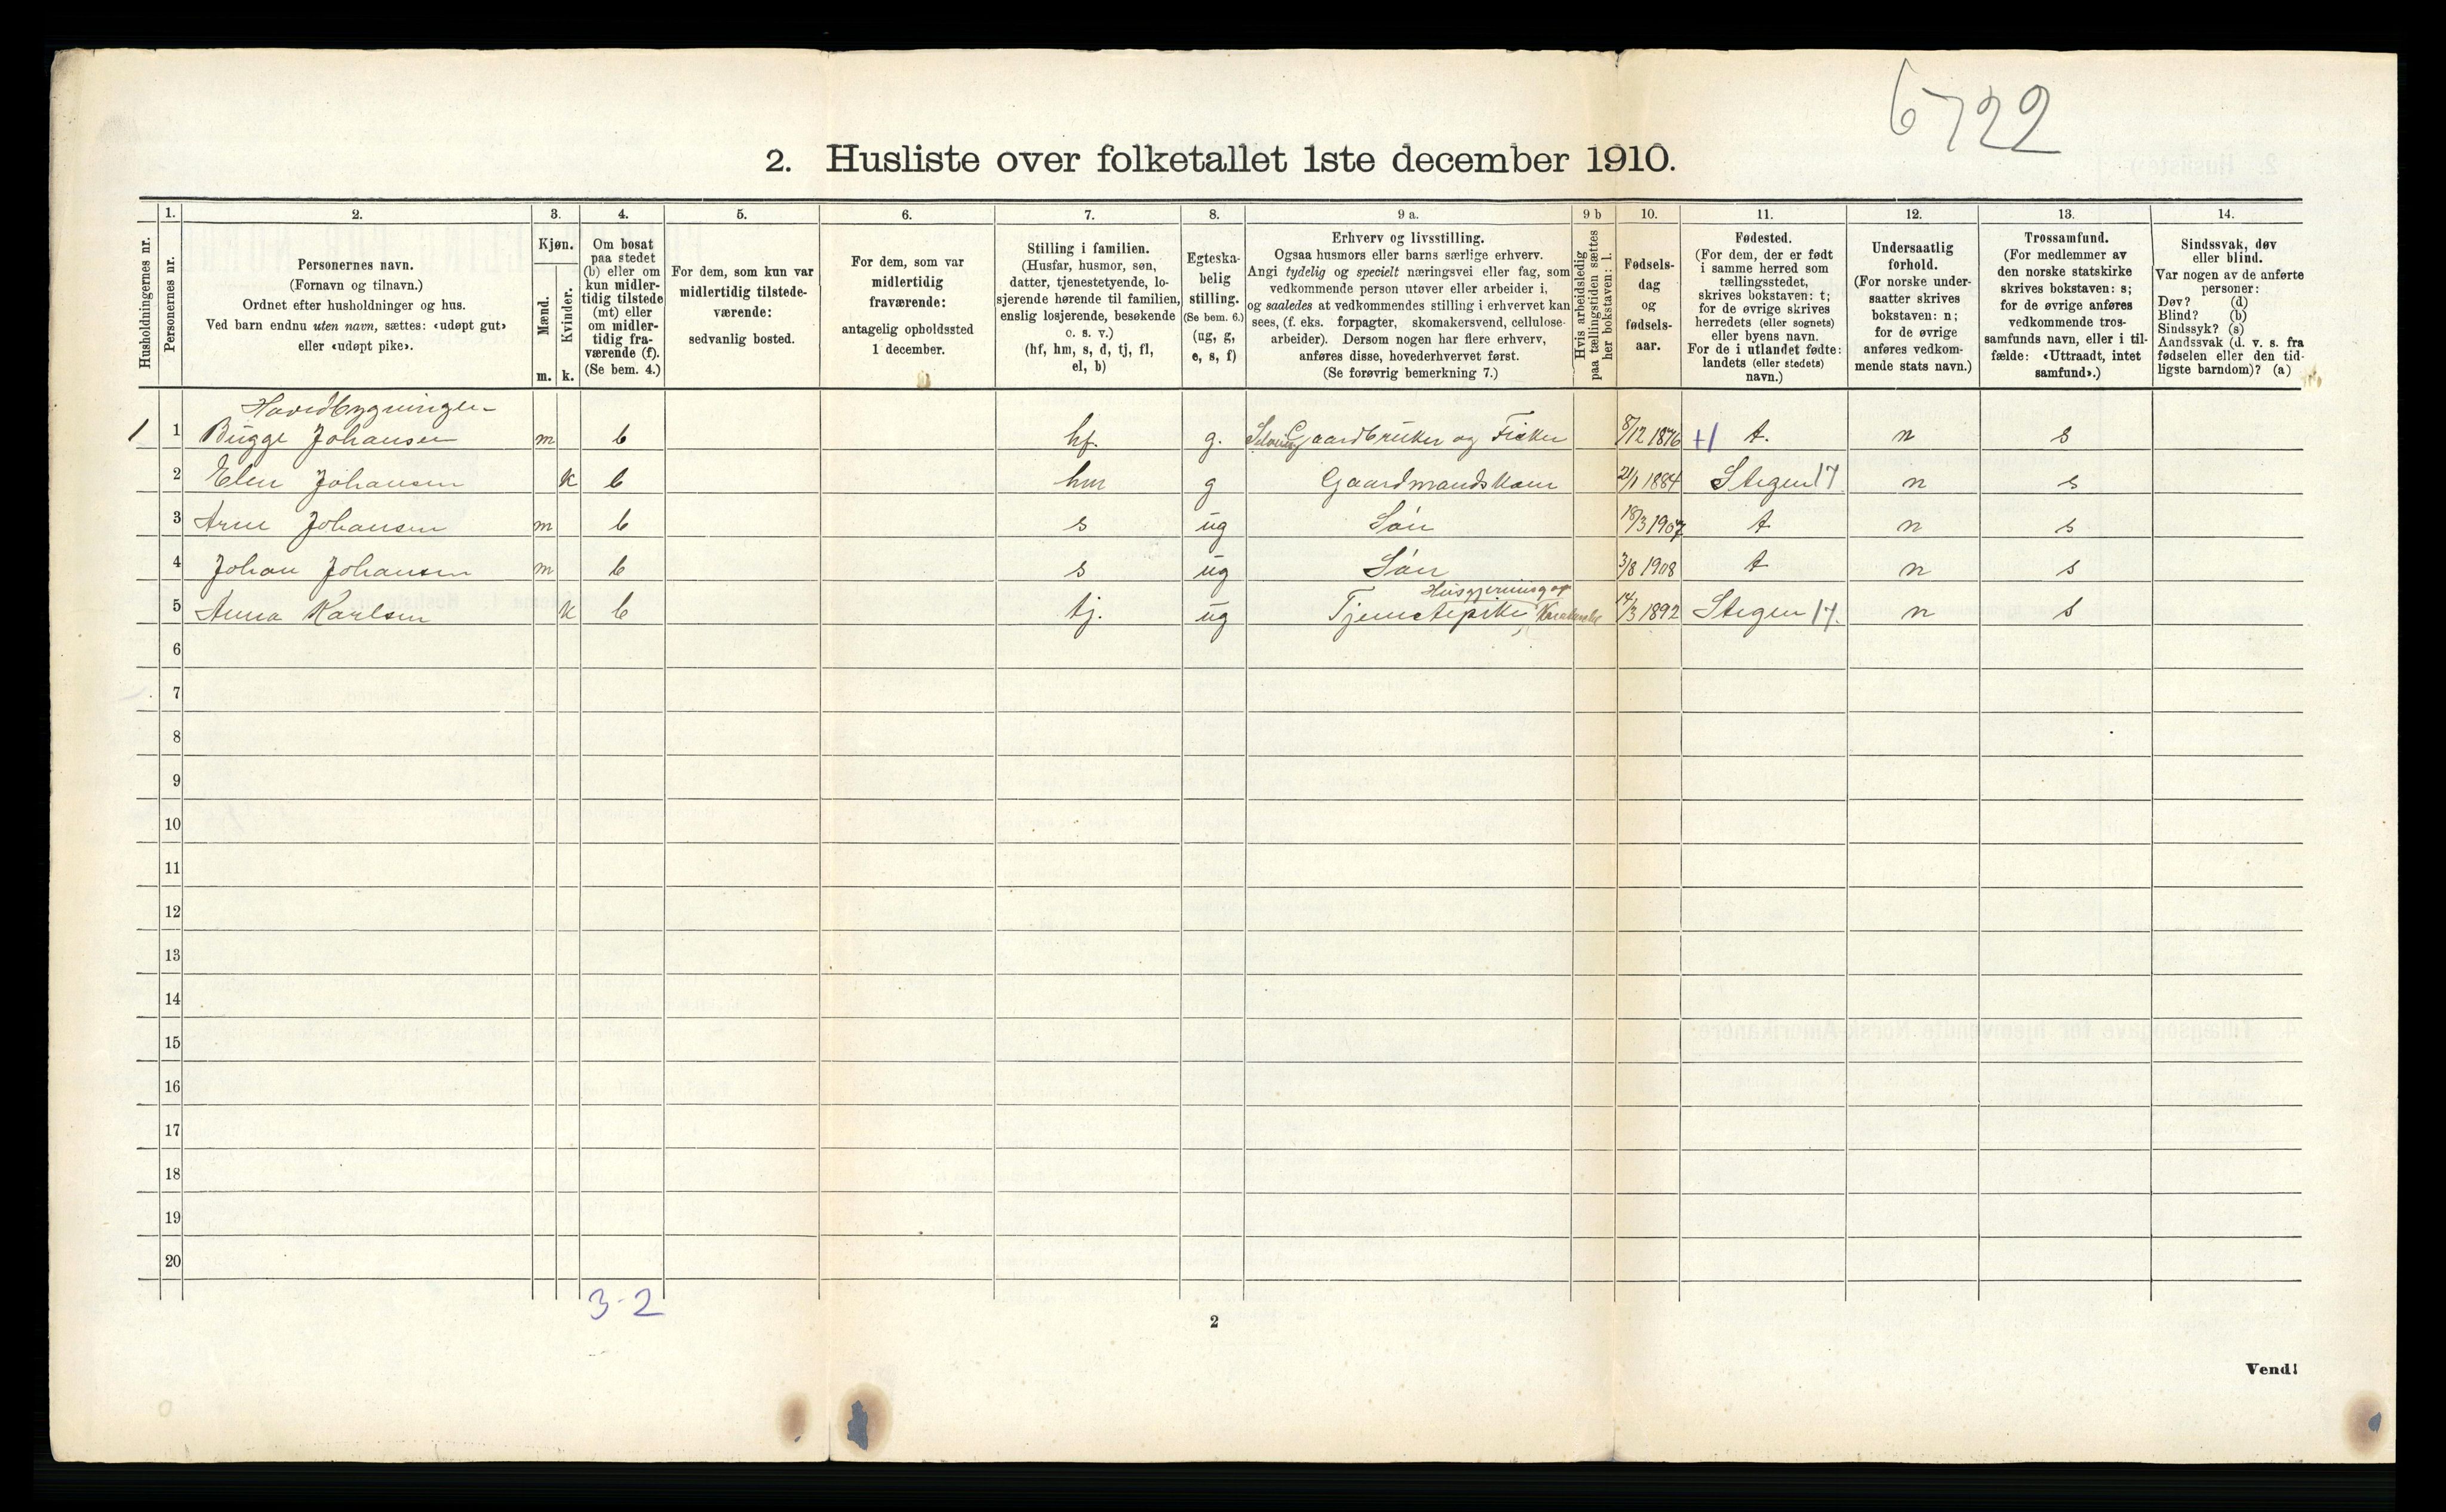 6722
2. Husliste over folketallet 1ste december 1910.
Husholdningernes nr.
1.
Personernes nr.
2.
Personernes navn.
(Fornavn og tilnavn.)
Ordnet efter husholdninger og hus.
Ved barn endnu uten navn, sættes: «udøpt gut»
eller «udøpt pike».
3.
Kjøn.
Mænd.
Kvinder.
m. k.
4.
Om bosat
paa stedet
(b) eller om
kun midler-
tidig tilstede
(mt) eller
om midler-
tidig fra-
værende (f).
(Se bem. 4.)
5.
For dem, som kun var
midlertidig tilstede-
værende:
sedvanlig bosted.
6.
For dem, som var
midlertidig
fraværende:
antagelig opholdssted
1 december.
7.
Stilling i familien.
(Husfar, husmor, søn,
datter, tjenestetyende, lo-
sjerende hørende til familien,
enslig losjerende, besøkende
o. s. v.)
(hf, hm, s, d, tj, fl,
el, b)
8.
Egteska-
belig
stilling.
(Se bem. 6.)
(ug, g,
e, s, f)
9 a.
Erhverv og livsstilling.
Ogsaa husmors eller barns særlige erhverv.
Angi tydelig og specielt næringsvei eller fag, som
vedkommende person utøver eller arbeider i,
og saaledes at vedkommendes stilling i erhvervet kan
sees, (f. eks. forpagter, skomakersvend, cellulose-
arbeider). Dersom nogen har flere erhverv,
anføres disse, hovederhvervet først.
(Se forøvrig bemerkning 7.)
9 b
Hvis arbeidsledig
paa tællingstiden sættes
her bokstaven: l.
10.
Fødsels-
dag
og
fødsels-
aar.
11.
Fødested.
(For dem, der er født
i samme herred som
tællingsstedet,
skrives bokstaven: t;
for de øvrige skrives
herredets (eller sognets)
eller byens navn.
For de i utlandet fødte:
landets (eller stedets)
navn.)
12.
Undersaatlig
forhold.
(For norske under-
saatter skrives
bokstaven: n;
for de øvrige
anføres vedkom-
mende stats navn.)
13.
Trossamfund.
(For medlemmer av
den norske statskirke
skrives bokstaven: s;
for de øvrige anføres
vedkommende tros-
samfunds navn, eller i til-
fælde: «Uttraadt, intet
samfund».)
14.
Sindssvak, døv
eller blind.
Var nogen av de anførte
personer:
Døv? (d)
Blind? (b)
Sindssyk? (s)
Aandssvak (d. v. s. fra
fødselen eller den tid-
ligste barndom)? (a)
Hovedbygningen
1 1 Bügge Johansen m b hf. g. Gaardbruker og Fisker 8/12 1876 t. n s
2 Elen Johansen k b hm g Gaardmandskone 21/1 1884 Stegen 17 n s
3 Arne Johansen m b s ug Søn 18/3 1907 t n s
4 Johan Johansen m b s ug Søn 3/8 1908 t n s
Husgjerning og
5 Anna Karlsen k b tj. ug Tjenestepike 14/3 1892 Stegen 17. n s
6
7
8
9
10
11
12
13
14
15
16
17
18
19
20
3-2
2
Vend!